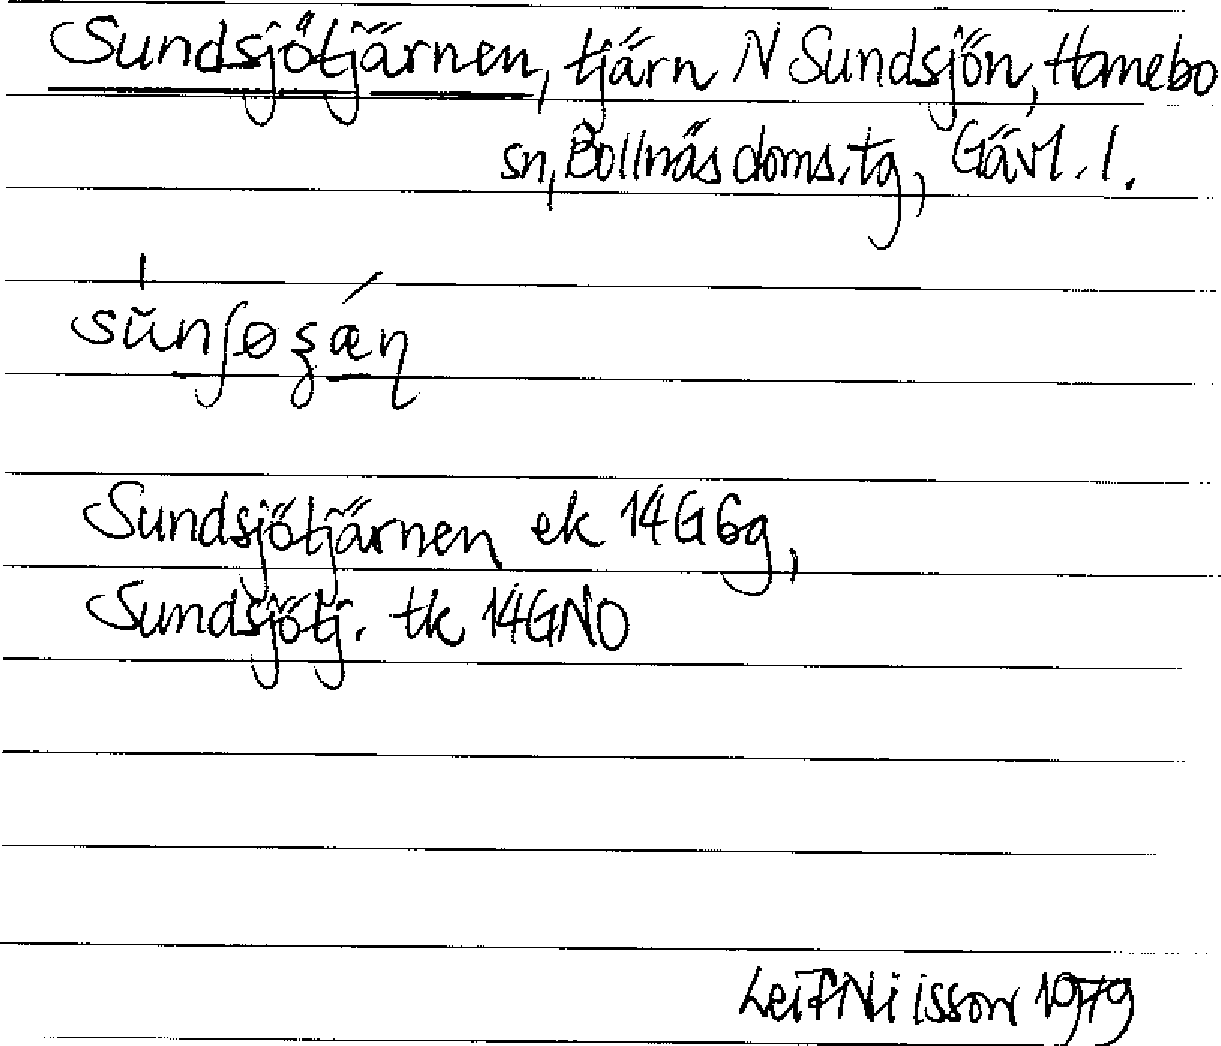 Sundsjötjärnen, tjärn N Sundsjön, Hanebo
sn, Bollnäs doms.tg, Gävl. l.
Sundsjötjärnen ek 14G6g,
Sundsjötj. tk 14GNO
Leif Nilsson 1979